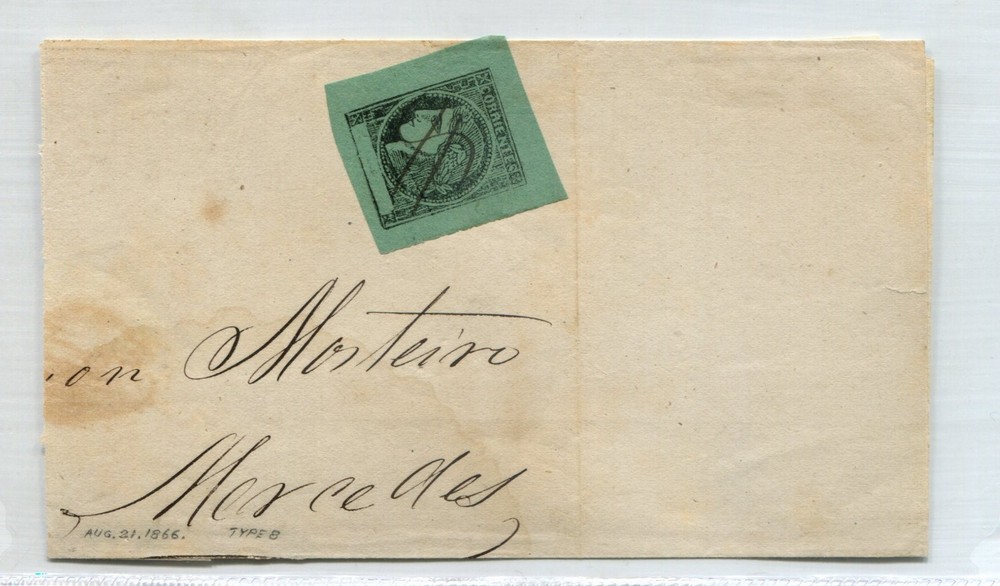 CORRIENTES
on Mosteiro
Mercedes
AUG. 21. 1866. TYPE 8